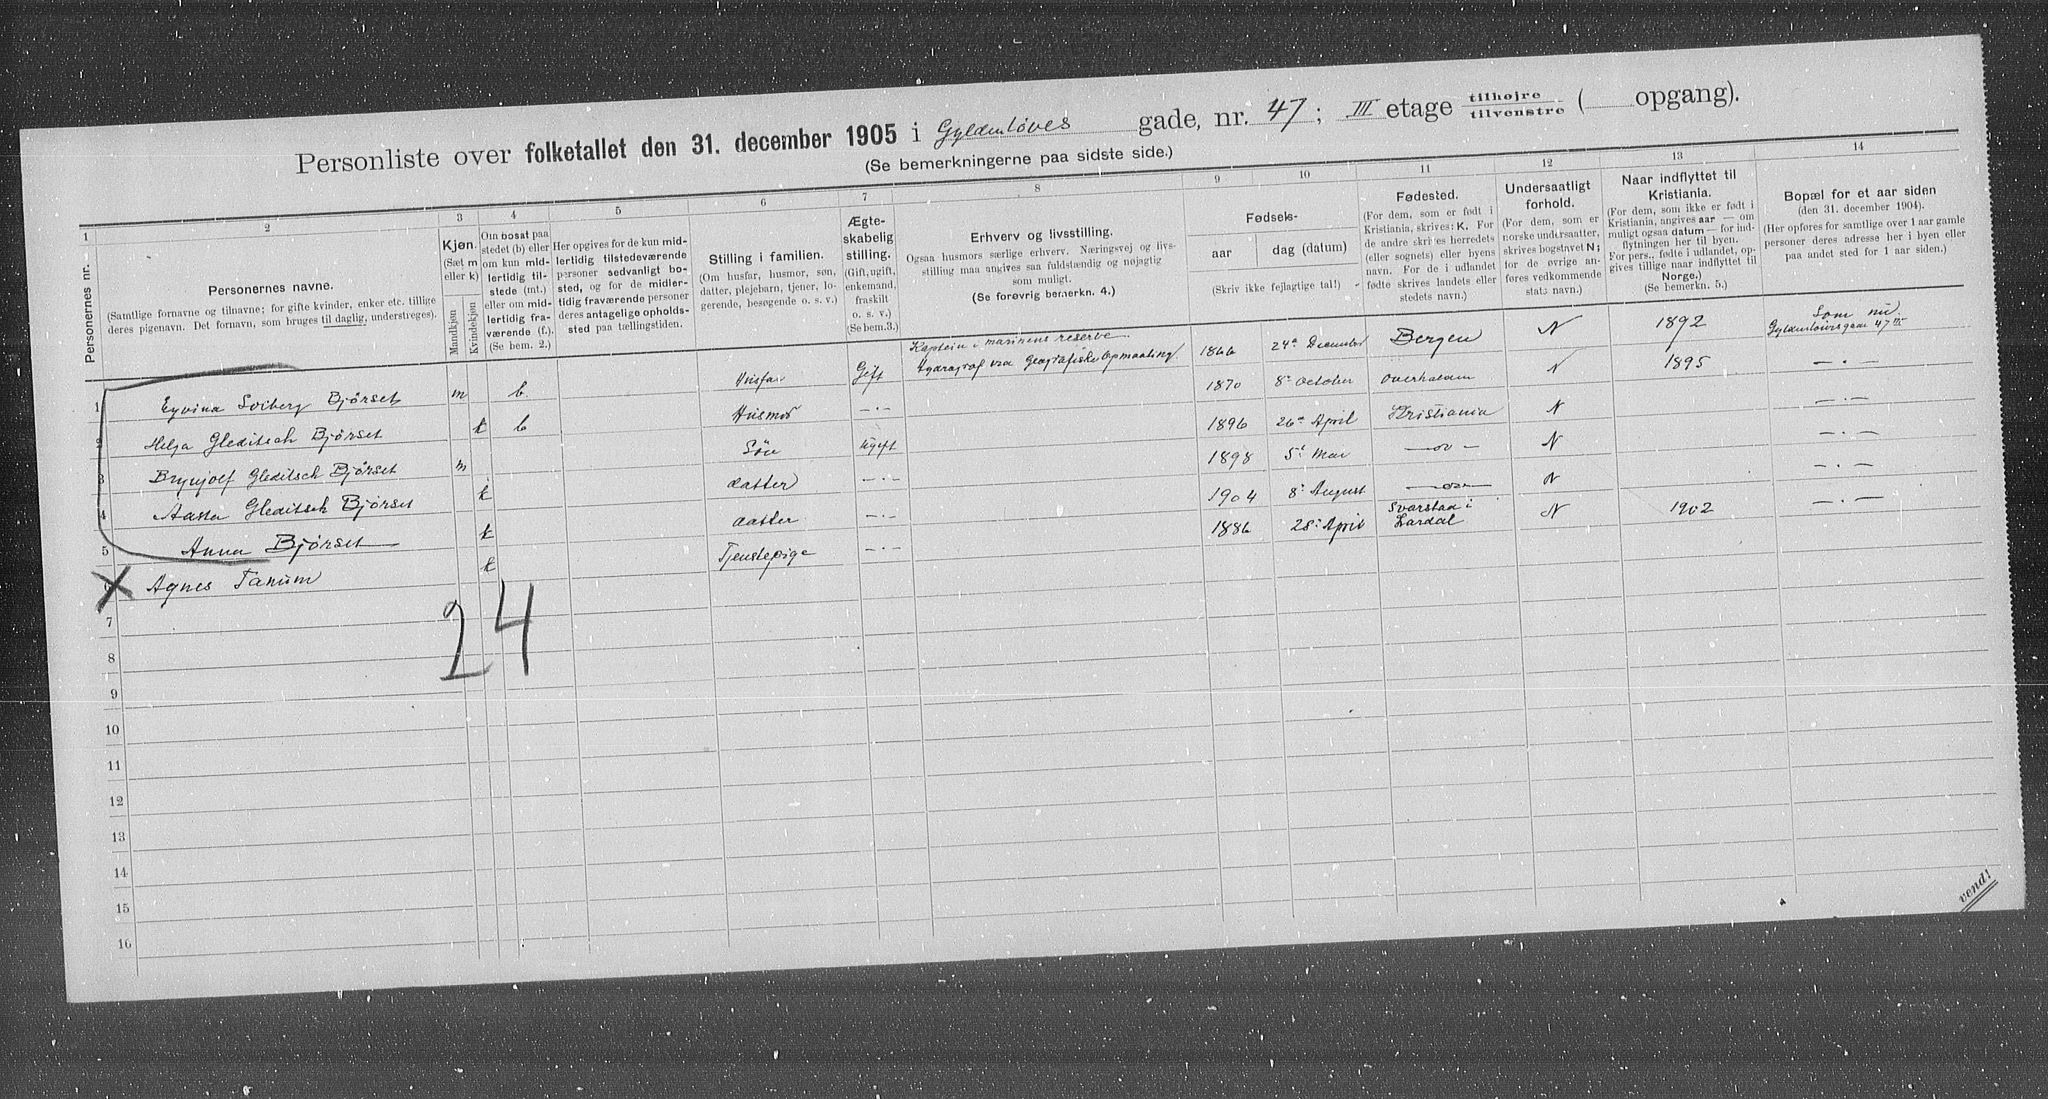 Personliste over folketallet den 31. december 1905 i Gyldenløves gade, nr. 47; III etage tilhøjre tilvenstre ( opgang).
(Se bemerkningerne paa sidste side.)
1 2 3 4 5 6 7 8 9 10 11 12 13 14
Personernes nr.
Personernes navne.
(Samtlige fornavne og tilnavne; for gifte kvinder, enker etc. tillige
deres pigenavn. Det fornavn, som bruges til daglig, understreges).
Kjøn.
(Sæt m
eller k)
Mandkjøn
Kvindekjøn
Om bosat paa
stedet (b) eller
om kun mid-
lertidig til-
stede (mt.)
eller om mid-
lertidig fra-
værende (f.).
(Se bem. 2.)
Her opgives for de kun mid-
lertidig tilstedeværende
personer sedvanligt bo-
sted, og for de midler-
tidig fraværende personer
deres antagelige opholds-
sted paa tællingstiden.
Stilling i familien.
(Om husfar, husmor, søn,
datter, plejebarn, tjener, lo-
gerende, besøgende o. s. v.)
Ægte-
skabelig
stilling.
(Gift, ugift,
enkemand,
fraskilt
o. s. v.)
(Se bem.3.)
Erhverv og livsstilling.
Ogsaa husmors særlige erhverv. Næringsvej og livs-
stilling maa angives saa fuldstændig og nøjagtig
som muligt.
(Se forøvrig bemerkn. 4.)
Fødsels-
aar dag (datum)
(Skriv ikke fejlagtige tal!)
Fødested.
(For dem, som er født i
Kristiania, skrives: K. For
de andre skrives herredets
(eller sognets) eller byens
navn. For de i udlandet
fødte skrives landets eller
stedets navn.)
Undersaatligt
forhold.
(For dem, som er
norske undersaatter,
skrives bogstavet N;
for de øvrige an-
føres vedkommende
stats navn.)
Naar indflyttet til
Kristiania.
(For dem, som ikke er født i
Kristiania, angives aar — om
muligt ogsaa datum — for ind-
flytningen her til byen.
For pers., fødte i udlandet, op-
gives tillige naar indflyttet til
Norge.)
(Se bemerkn. 5.)
Bopæl for et aar siden
(den 31. december 1904).
(Her opføres for samtlige over 1 aar gamle
personer deres adresse her i byen eller
paa andet sted for 1 aar siden.)
1 Eyvind Solberg Bjørset m b. Husfar Gift Kaptein i marinens reserve
Hydrograf ved Geografiskopmaaling 1866 24de December Bergen N 1892 Som nu.
Gyldenløvesgade 47 III
2 Helga Gleditsch Bjørset k b Husmor —·— 1870 8de October Overhalden N 1895 —·—
3 Brynjolf Gleditsch Bjørset m Søn Ugift 1896 26de April Kristiania N —·—
4 Aasta Gleditsch Bjørset k datter —·— 1898 5te Mai —do— N —·—
5 Anna Bjørset k datter —·— 1904 8de August —do— N —·—
6 Agnes Tanum k Tjenstepige —·— 1886 28de April Svarstad i
Lardal N 1902 —·—
24
7
8
9
10
11
12
13
14
15
16
vend!